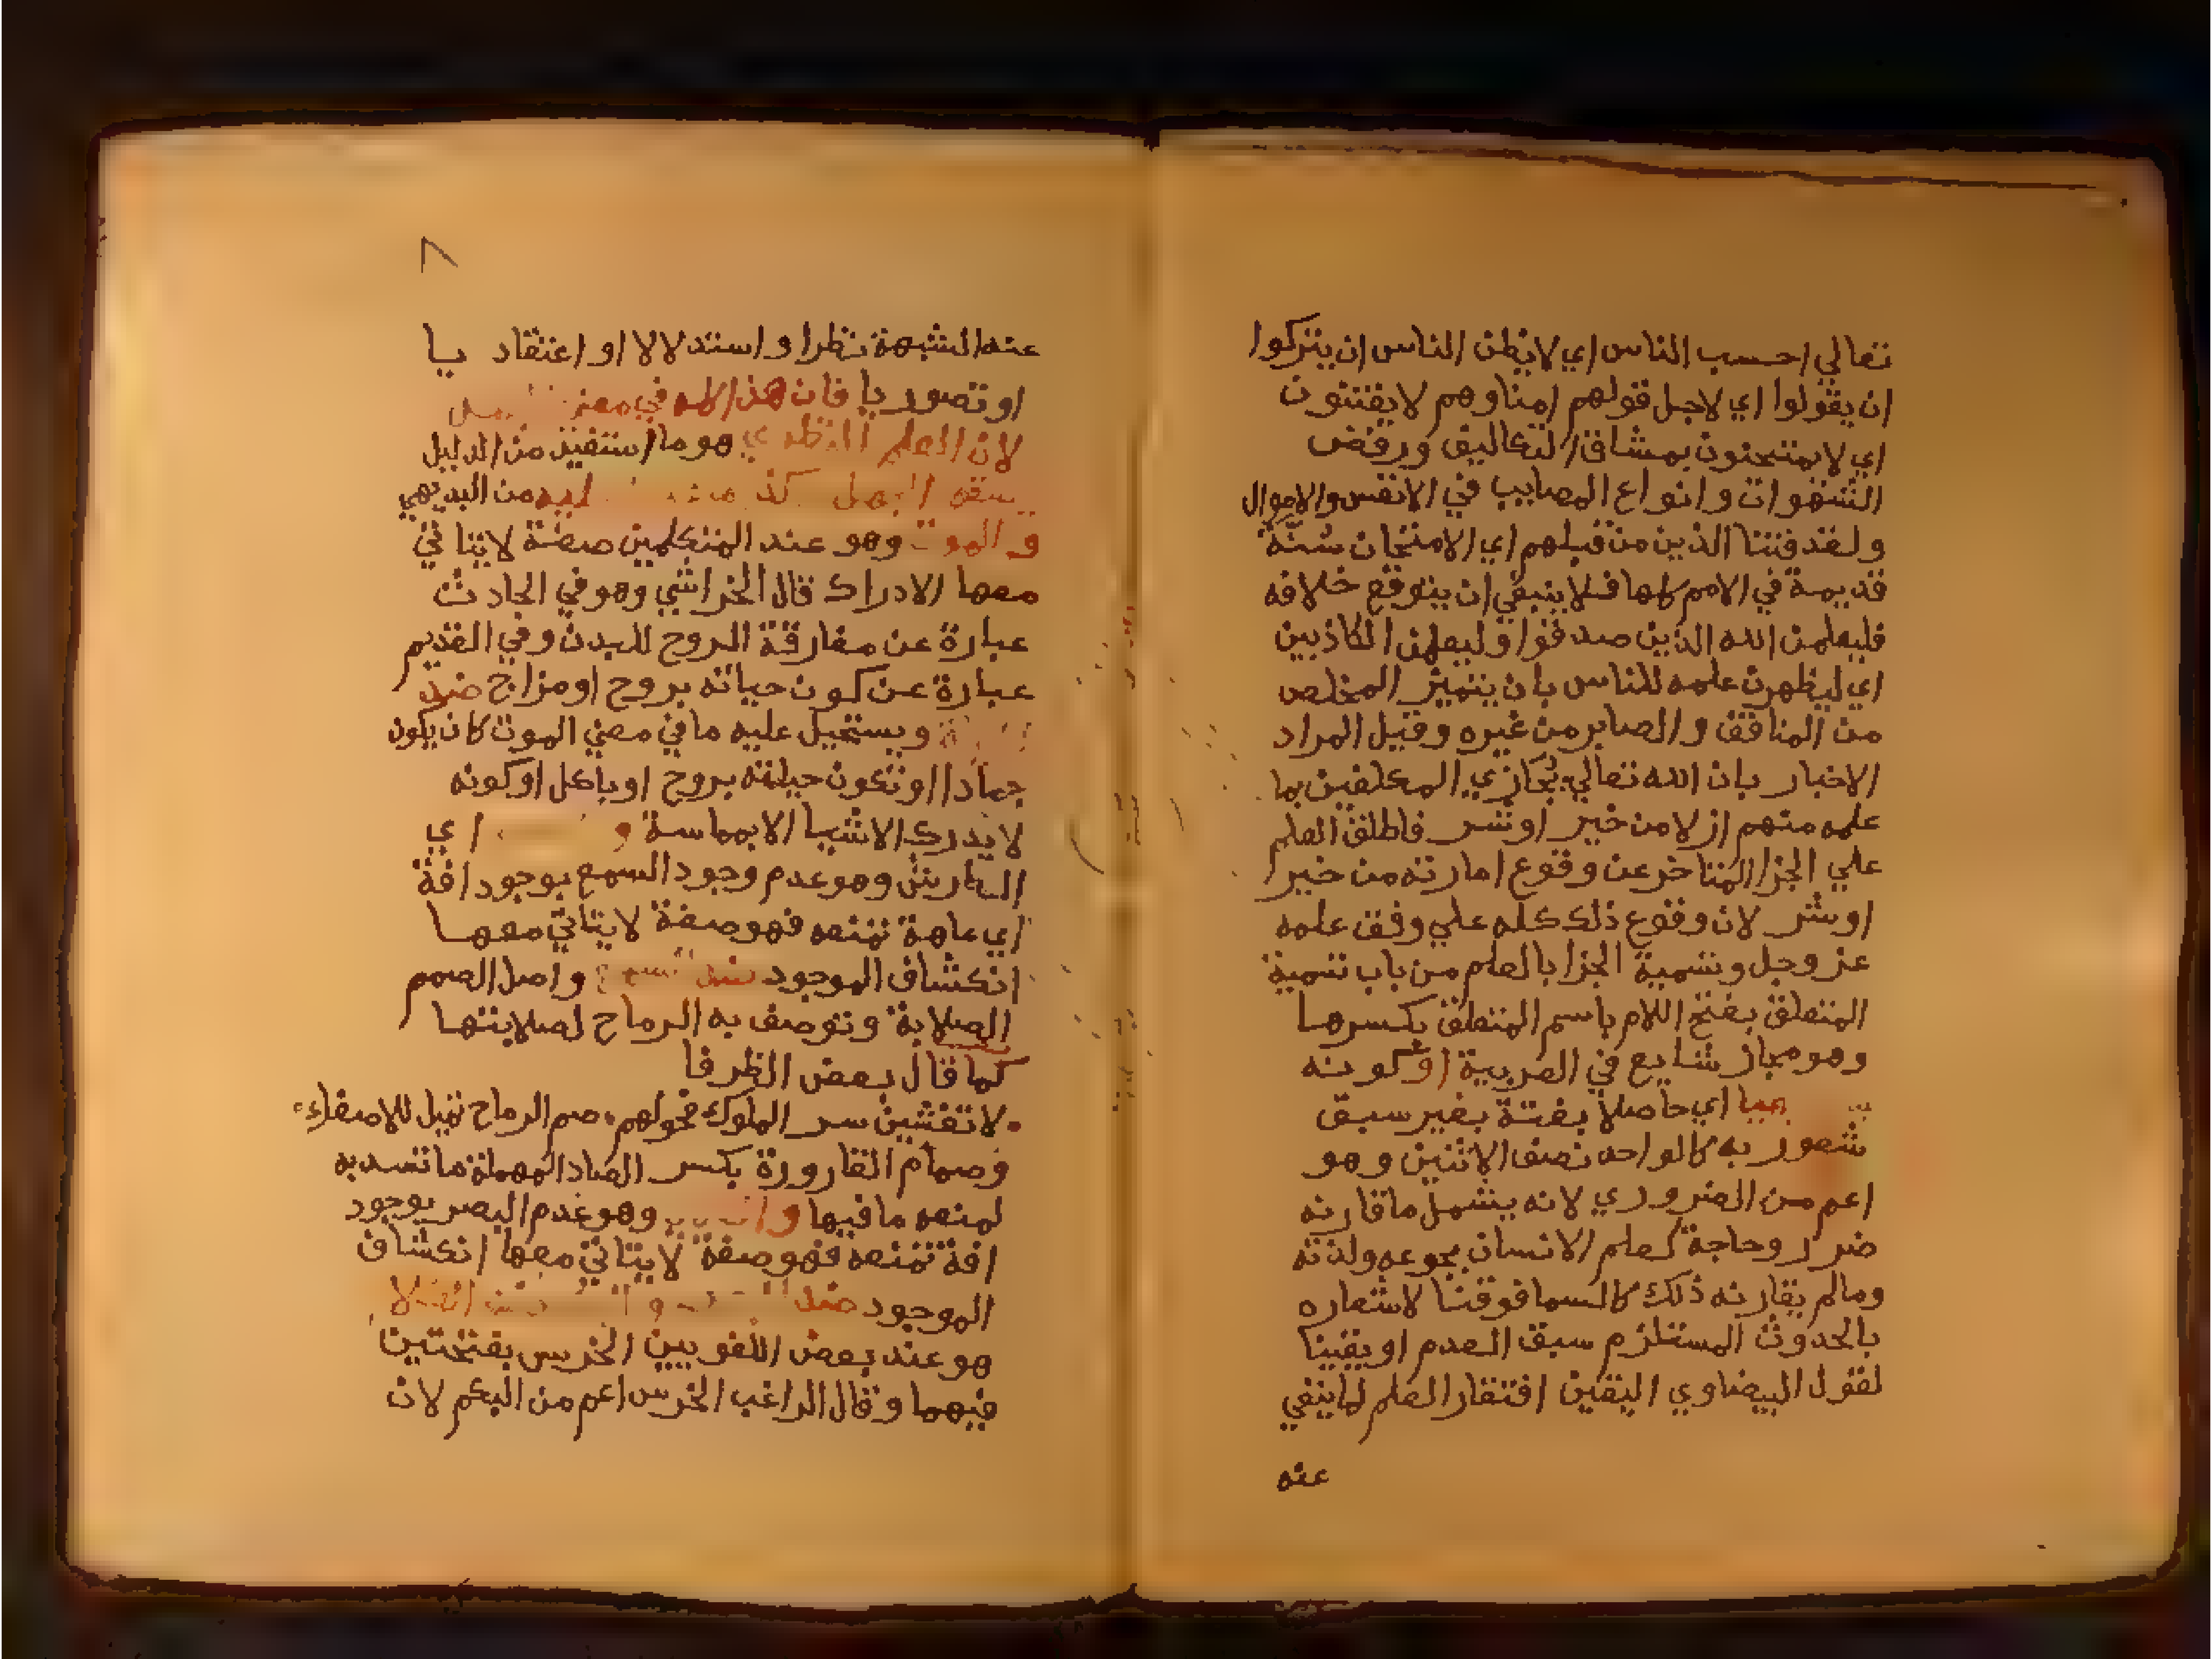 تعالي احسب الناس اي لا يظن الناس ان يتركوا
ان يقولوا اي لاجل قولهم امنا وهم لا يفتنون
اي لا يمتحنون بمشاق التكاليف ورفض
الشهوات وانواع المصايب في الانفس والاموال
ولقد فتنا الذين من قبلهم اي الامتحان سنة
قديمة في الامم كلها فلا ينبغي ان يتوقع خلافه
فليعلمن الله الذين صدقوا وليعلمن الكاذبين
اي ليظهرن علمه للناس بان يتميز المخلص
من المنافق والصابر من غيره وقيل المراد
الاخبار بان الله تعالي يُجازي المكلفين بما
علمه منهم ازلا من خير او شر فاطلق العلم
علي الجزا المتاخر عن وقوع امارته من خير
او شر لان وقوع ذلك كله علي وفق علمه
عز وجل وتسمية الجزا بالعلم من باب تسمية
المتعلق بفتح اللام باسم المتعلق بكسرها
وهو مجاز شايع في العربية او كونه
اي حاصلا بغتة بغير سبق
شعور به كالواحد نصف الاثنين وهو
اعم من الضروري لانه يشمل ما قارنه
ضرر وحاجة كعلم الانسان بجوعه ولذته
وما لم يقارنه ذلك كالسما فوقنا لاشعاره
بالحدوث المستلزم سبق العدم او يقينا
لقول البيضاوي اليقين افتقار العلم لما ينفي
عنه
٨
عنه الشبهة نظرا واستدلالا او اعتقاد يا
او تصور يا فان هذا الامه في معني
لان العلم النظري هو ما استفيد من الدليل
يسبقه الجهل من البديهي
والموت وهو عند المتكلمين صفة لا يتاتي
معها الادراك قال الخراشي وهو في الحادث
عبارة عن مفارقة الروح للبدن وفي القديم
عبارة عن كون حياته بروح او مزاج ضد
ويستحيل عليه ما في معني الموت كان يكون
جمادا او تكون حياته بروح او باكل او كونه
لا يدرك الاشيا الا بمماسة و اي
الطرش وهو عدم وجود السمع بوجود افة
اي عاهة تمنعه فهو صفة لا يتاتي معها
انكشاف الموجود ضد السمع واصل الصمم
الصلابة وتوصف به الرماح لصلابتها
كما قال بعض الظرفا
لا تفشين سر الملوك فحولهم صم الرماح تميل للاصغاء
وصمام القارورة بكسر الصاد المهملة ما تسد به
لمنعه ما فيها وهو عدم البصر بوجود
افة تمنعه فهو صفة لا يتاتي معها انكشاف
الموجود ضد
هو عند بعض اللغويين الخرس بفتحتين
فيهما وقال الراغب الخرس اعم من البكم لان